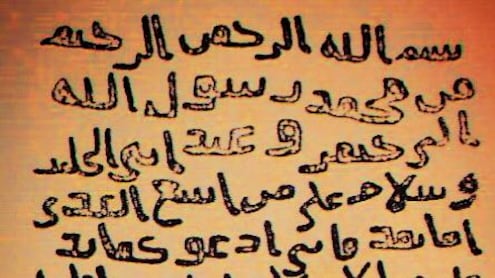 بسم الله الرحمن الرحيم
من محمد رسول الله
الى جيفر و عبد ابني الجلند
و سلام على من اتبع الهدى
اما بعد فاني ادعوكما بد